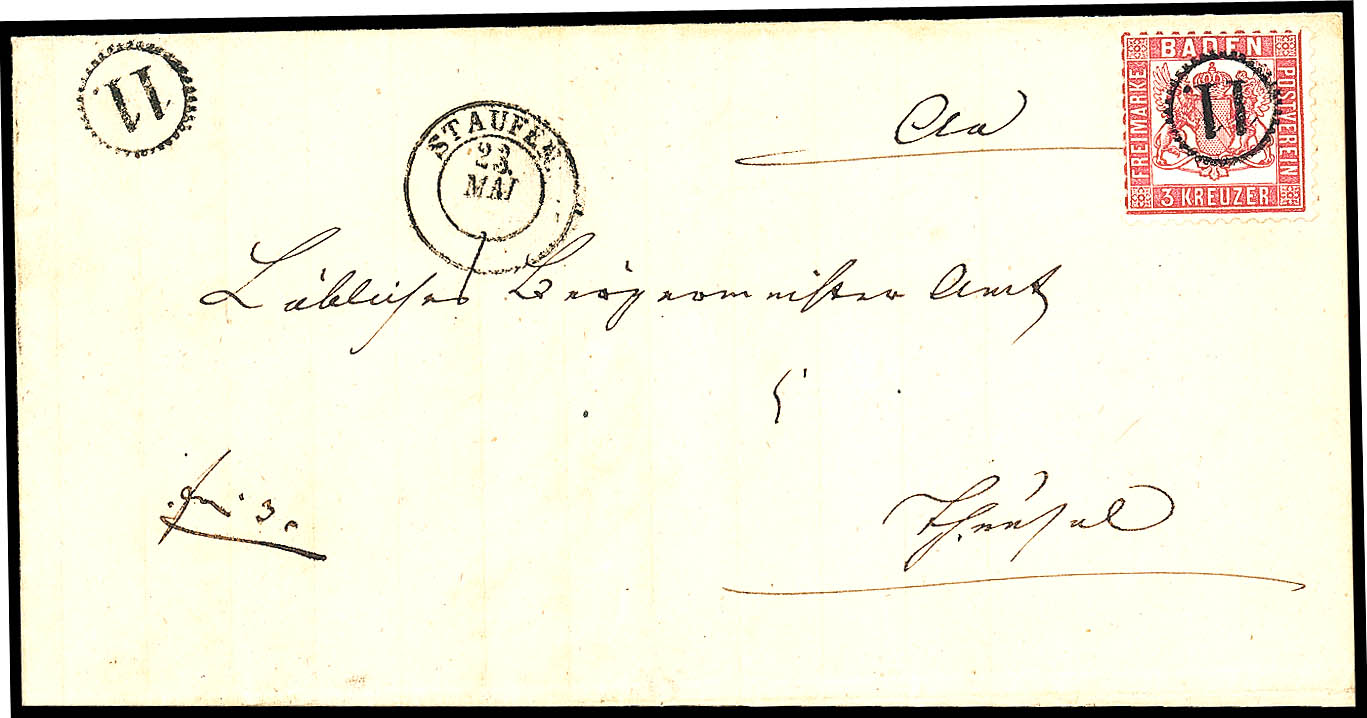 11
STAUFEN
23.
MAI
BADEN
FREIMARKE
POSTVEREIN
3 KREUZER
11
An
Löbliches Bürgermeister Amt
Thunsel